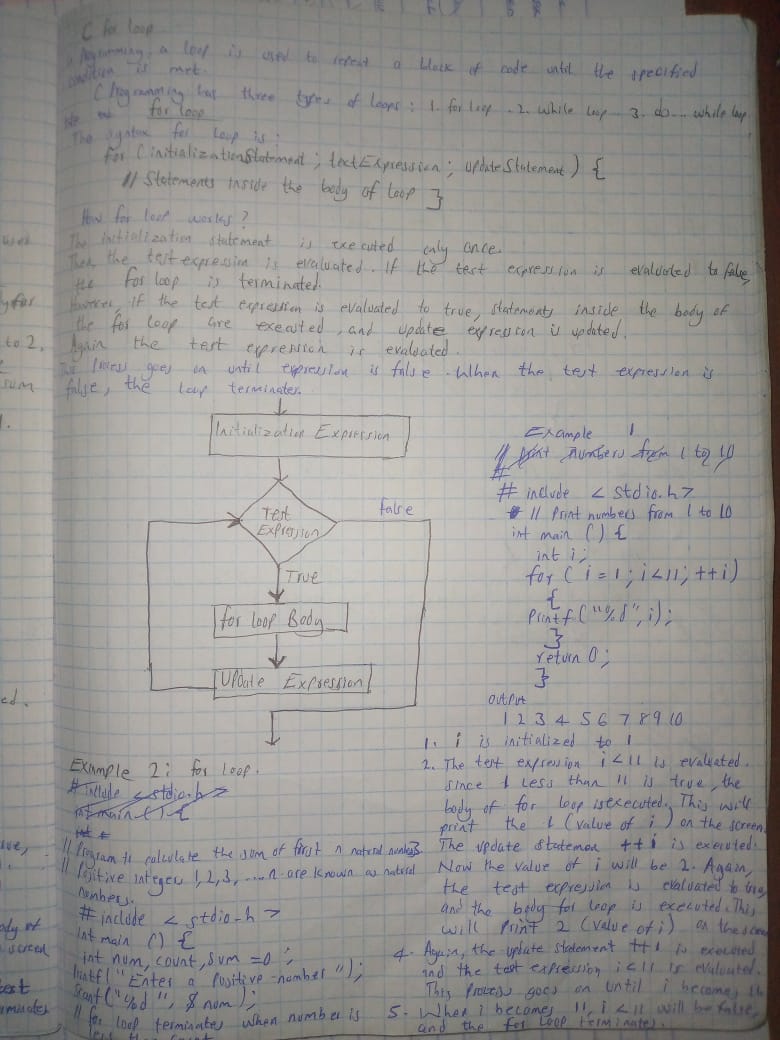 C for loop
Programming, a loop is used to repeat a block of code until the specified
condition is met.
C Programming has three types of loops: 1. for loop. 2. while loop 3. do... while loop.
for loop
The syntax for loop is:
for (initializationStatement; textExpression; updateStatement) {
// Statements inside the body of loop }
How for loop works?
The initialization statement is executed only once.
Then the test expression is evaluated. If the test expression is evaluated to false,
the for loop is terminated.
However, If the test expression is evaluated to true, statements inside the body of
the for loop are executed, and update expression is updated.
Again the test expression is evaluated.
This Process goes on until expression is false. When the test expression is
false, the loop terminates.
Initialization Expression
Test
Expression
false
True
for loop Body
Update Expression
Example 1
// print numbers from 1 to 10
#
# include < stdio.h >
# // Print numbers from 1 to 10
int main () {
int i;
for (i = 1; i < 11; ++i)
{
Printf ("%d", i);
}
return 0;
}
output
1 2 3 4 5 6 7 8 9 10
1. i is initialized to 1
2. The test expression i < 11 is evaluated.
Since 1 less than 11 is true, the
body of for loop is executed. This will
print the 1 (value of i) on the screen.
3. The update statemen ++i is executed.
Now the value of i will be 2. Again,
the test expression is evaluated to true,
and the body for loop is executed. This
will Print 2 (value of i) on the screen
4. Again, the update statement ++i is executed
and the test expression i < 11 is evaluated.
This Process goes on until i becomes 11
5. When i becomes 11, i < 11 will be false,
and the for loop terminates.
Example 2: for loop.
# include < stdio.h >
int main () {
int
// Program to calculate the sum of first n natural numbers
// Positive integers 1, 2, 3, ....n are known as natural
numbers.
# include < stdio.h >
int main () {
int num, count, sum = 0;
Printf ("Enter a Positive number");
Scanf ("%d", $ num);
// for loop terminates when number is
used
y for
to 2.
sum
1.
ed.
ive,
ody of
screen
test
erminates